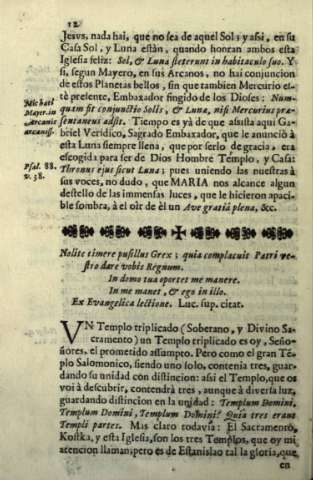 12
Jesvs, nada hai, que no sea de aquel Sol; y assi, en su
Casa Sol, y Luna estàn, quando honran ambos esta
Iglesia feliz: Sol, & Luna steterunt in habitaculo suo. Y
si, segun Mayero, en sus Arcanos, no hai conjuncion
de estos Planetas bellos, sin que tambien Mercurio es-
tè presente, Embaxador fingido de los Dioses: Num-
quam fit conjunctio Solis, & Luna, nisi Mercurius præ-
sentaneus adsit. Tiempo es yà de que assista aqui Ga-
briel Veridico, Sagrado Embaxador, que le anunciò à
esta Luna siempre llena, que por serlo de gracia, era
escogida para ser de Dios Hombre Templo, y Casa:
Thronus ejus sicut Luna; pues uniendo las nuestras à
sus voces, no dudo, que MARIA nos alcance algun
destello de las immensas luces, que le hicieron apaci-
ble sombra, à el oir de èl un Ave gratiâ plena, &c.
Michael
Mayer. in
Arcanis
arcaniss.
Psal. 88.
v. 38.
Nolite timere pusillus Grex; quia complacuit Patri ve-
stro dare vobis Regnum.
In domo tua oportet me manere.
In me manet, & ego in illo.
Ex Evangelica lectione. Luc. sup. citat.
VN Templo triplicado (Soberano, y Divino Sa-
cramento) un Templo triplicado es oy, Seño-
ñores, el prometido assumpto. Pero como el gran Tē-
plo Salomonico, siendo uno solo, contenia tres, guar-
dando su unidad con distincion: assi el Templo, que os
voi à descubrir, contendrà tres, aunque à diversa luz,
guardando distincion en la unidad: Templum Domini,
Templum Domini, Templum Domini? Quia tres erant
Templi partes. Mas claro todavia: El Sacramento,
Kostka, y esta Iglesia, son los tres Templos, que oy mi
atencion llaman; pero es de Estanislao tal la gloria, que
en